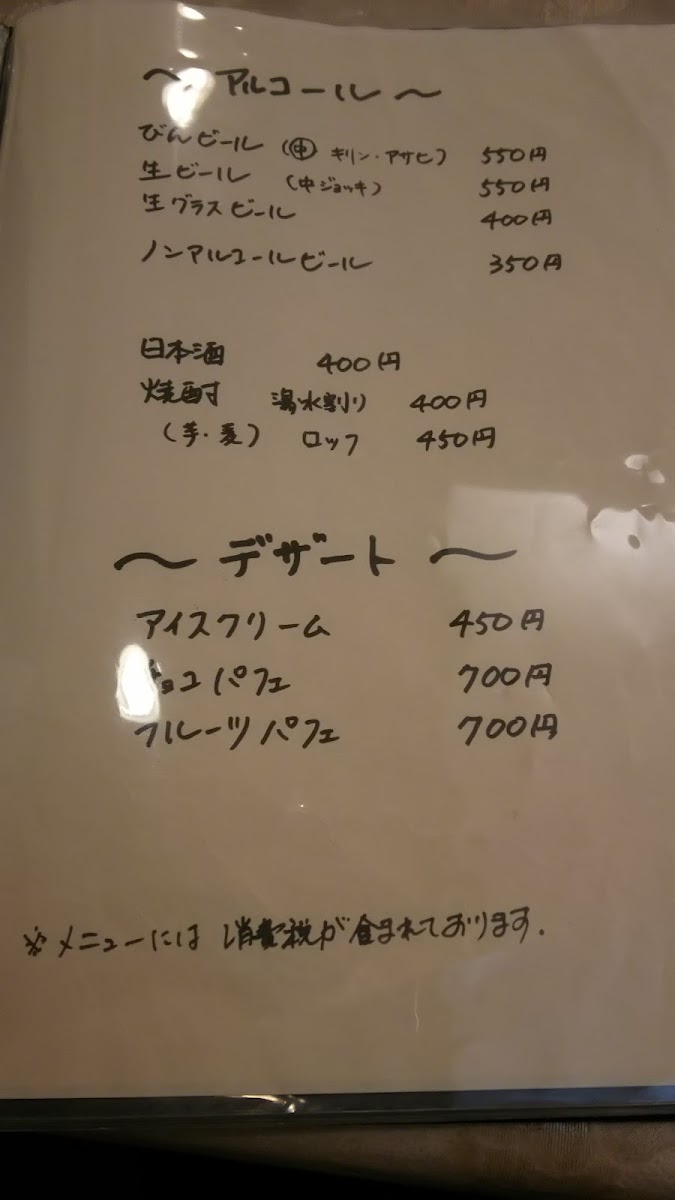 ～ アルコール ～
びんビール (㊥ キリン・アサヒ) 550円
生ビール (中ジョッキ) 550円
生グラスビール 400円
ノンアルコールビール 350円
日本酒 400円
焼酎 湯水割り 400円
(芋・麦) ロック 450円
～ デザート ～
アイスクリーム 450円
チョコパフェ 700円
フルーツパフェ 700円
※メニューには消費税が含まれております.